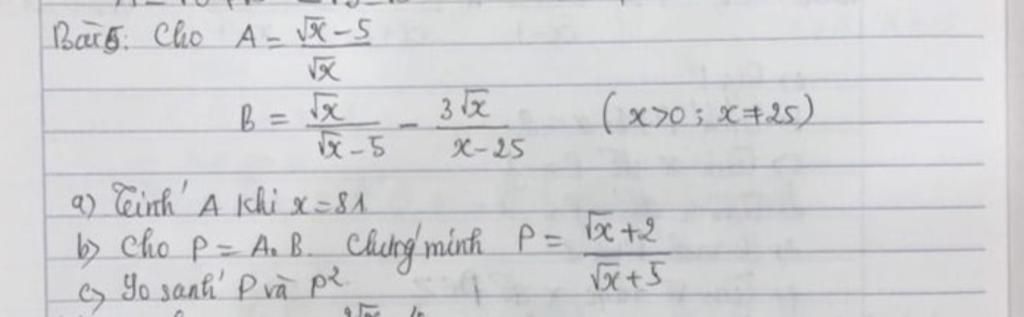 Bài 5: Cho A = (√x − 5)/√x
B = √x/(√x − 5) − 3√x/(x − 25) (x>0; x≠25)
a) Tính A khi x=81
b) Cho P = A.B. Chứng minh P = (√x + 2)/(√x + 5)
c) So sánh P và P²